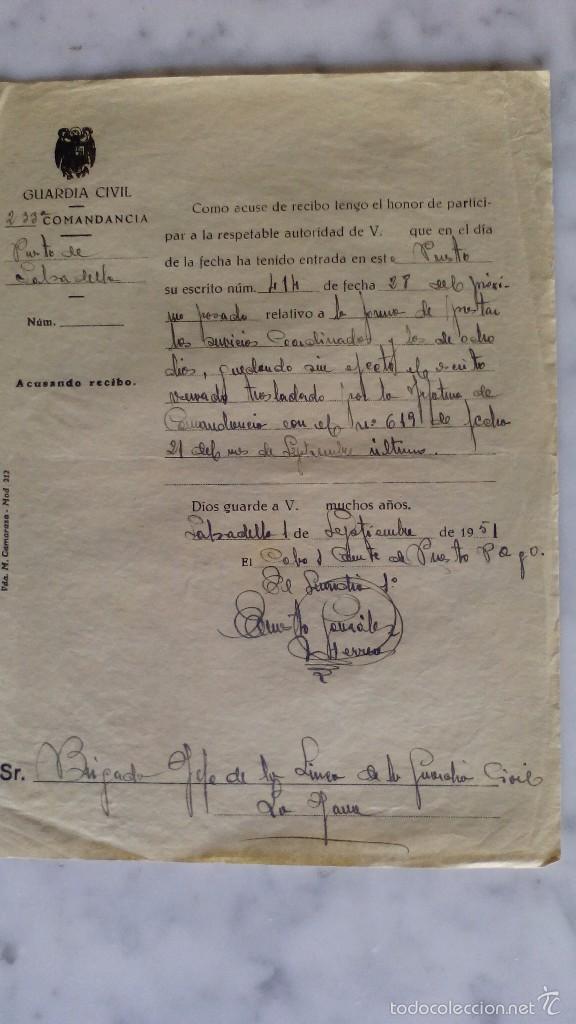 GUARDIA CIVIL
233ª COMANDANCIA
Puesto de
Salzadella
Núm.
Acusando recibo.
Como acuse de recibo tengo el honor de partici-
par a la respetable autoridad de V. que en el día
de la fecha ha tenido entrada en este Puesto
su escrito núm. 414 de fecha 28 del próxi-
mo pasado relativo a la forma de prestar
los servicios Coordinados y los de ocho
dias, quedando sin efecto el escrito
trasladado por la Jefatura de
Comandancia con el nº 619 de fecha
21 del mes de Septiembre último.
Dios guarde a V. muchos años.
Salzadella 1 de Septiembre de 1951
El Cabo 1 Comte de Puesto P. A. y o.
El Guardia 1º
González
Herrera
Sr. Brigada Jefe de la Linea de la Guardia Civil
La Jana
Vda. M. Camarasa - Mod 313
todocoleccion.net